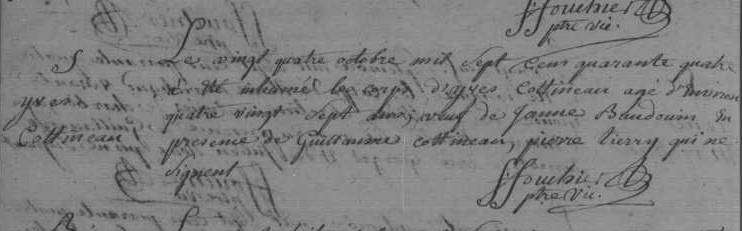 ffouchier
ptre vic.
S Le vingt quatre octobre mil sept cent quarante quatre
yves a été inhumé le corps d'yves Cottineau agé d'environ
Cottineau quatre vingt sept ans, veuf de Jeanne Baudouin en
presence de Guillaume cottineau, pierre Tierry qui ne
signent
ffouchier
ptre vic.